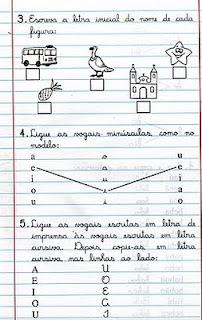 3. Escreva a letra inicial do nome de cada
figura:
4. Ligue as vogais minúsculas, como no
modelo:
a o u
e a e
i u i
o i a
u e o
5. Ligue as vogais escritas em letra de
imprensa às vogais escritas em letra
cursiva. Depois, copie-as em letra
cursiva nas linhas ao lado:
A U
E O
I E
O A
U I